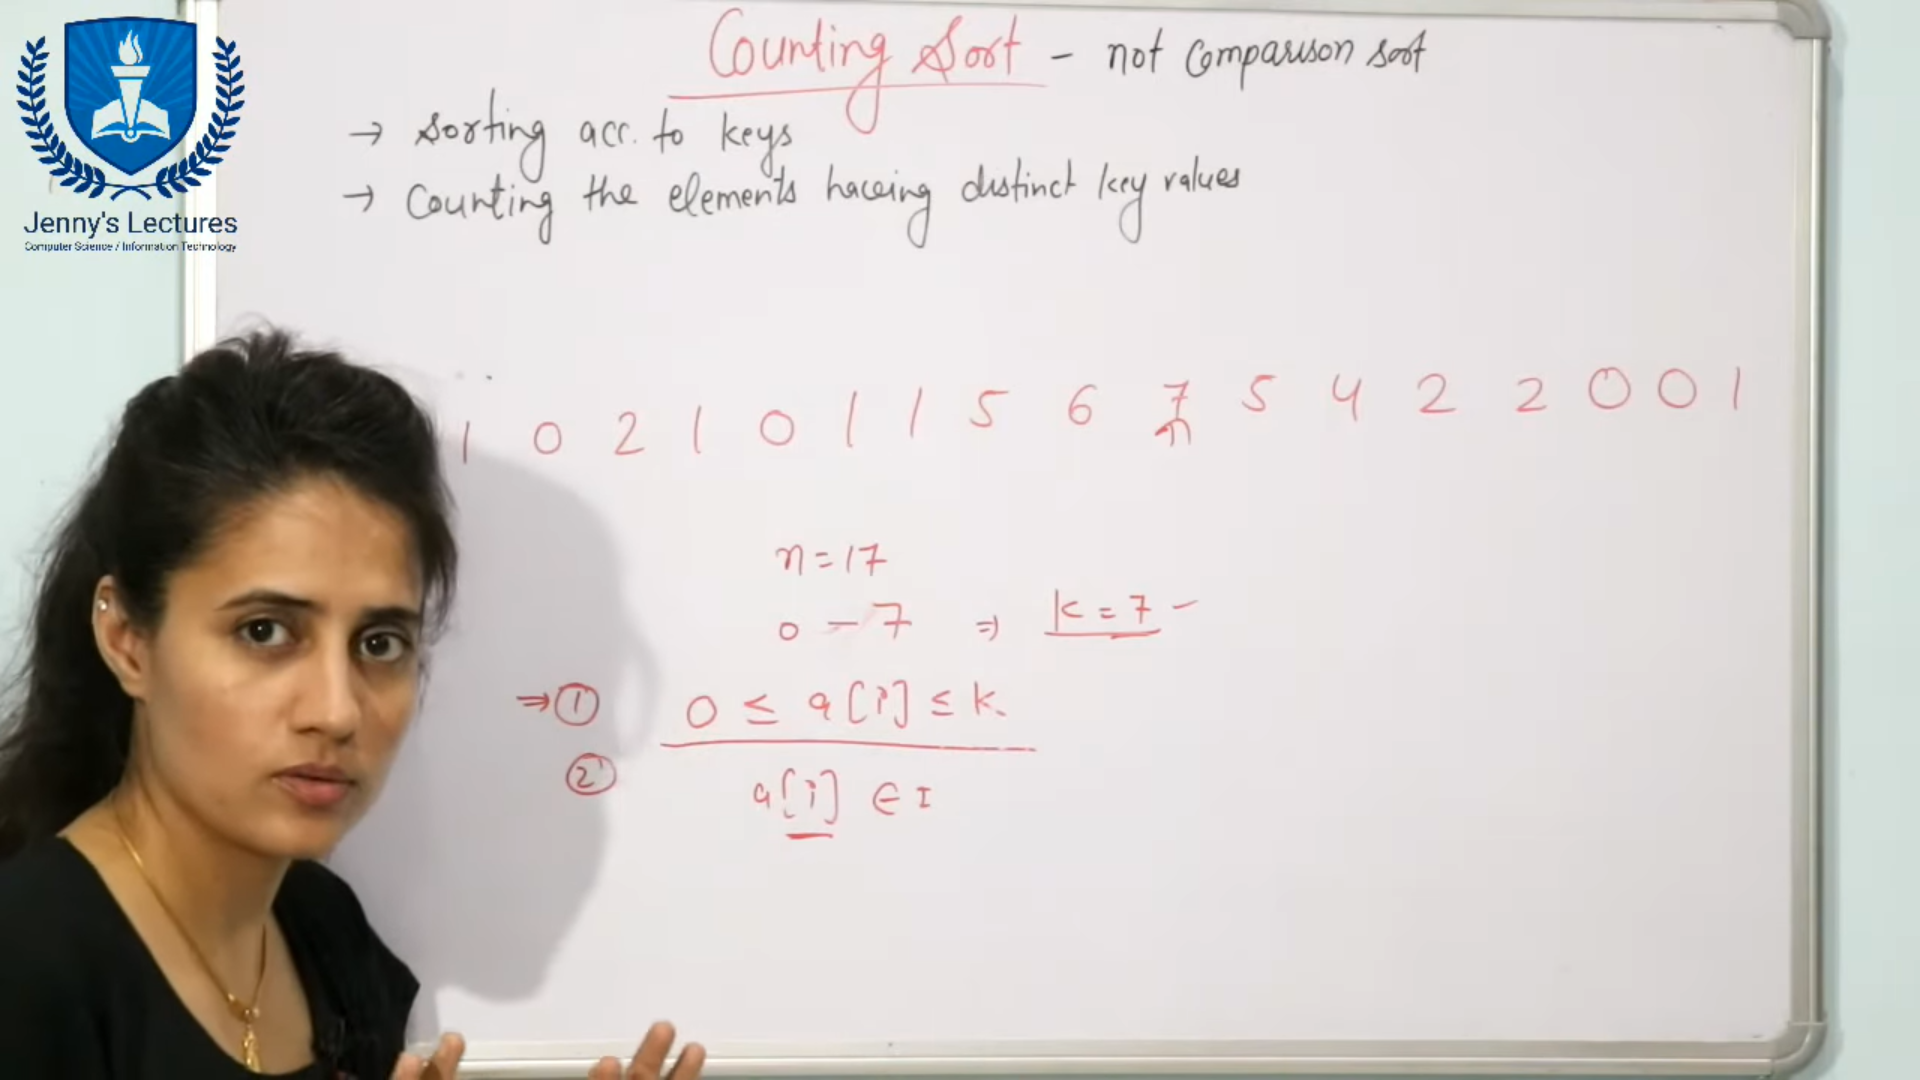 Jenny's Lectures
Computer Science / Information Technology
Counting Sort - not comparison sort
→ Sorting acc. to keys
→ Counting the elements having distinct key values
1 0 2 1 0 1 1 5 6 7 5 4 2 2 0 0 1
n = 17
0 - 7 ⇒ k = 7 -
⇒ ① 0 ≤ a[i] ≤ k
② a[i] ∈ I